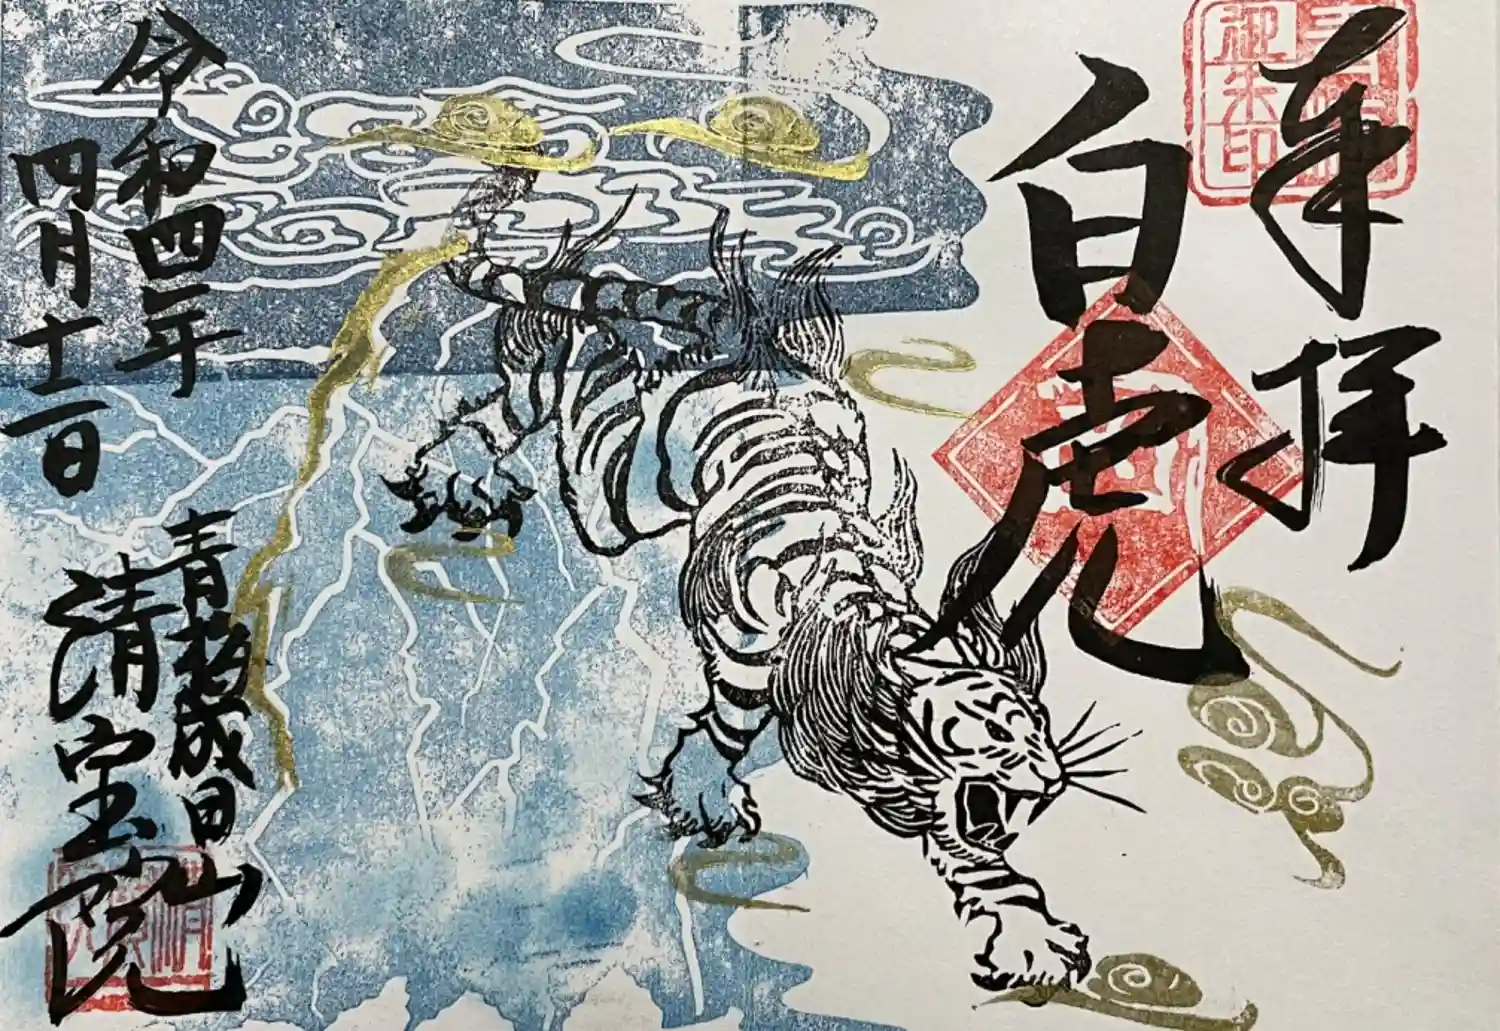 奉拝
御朱印
白虎
令和四年
四月十二日
青梅成田山
清宝院